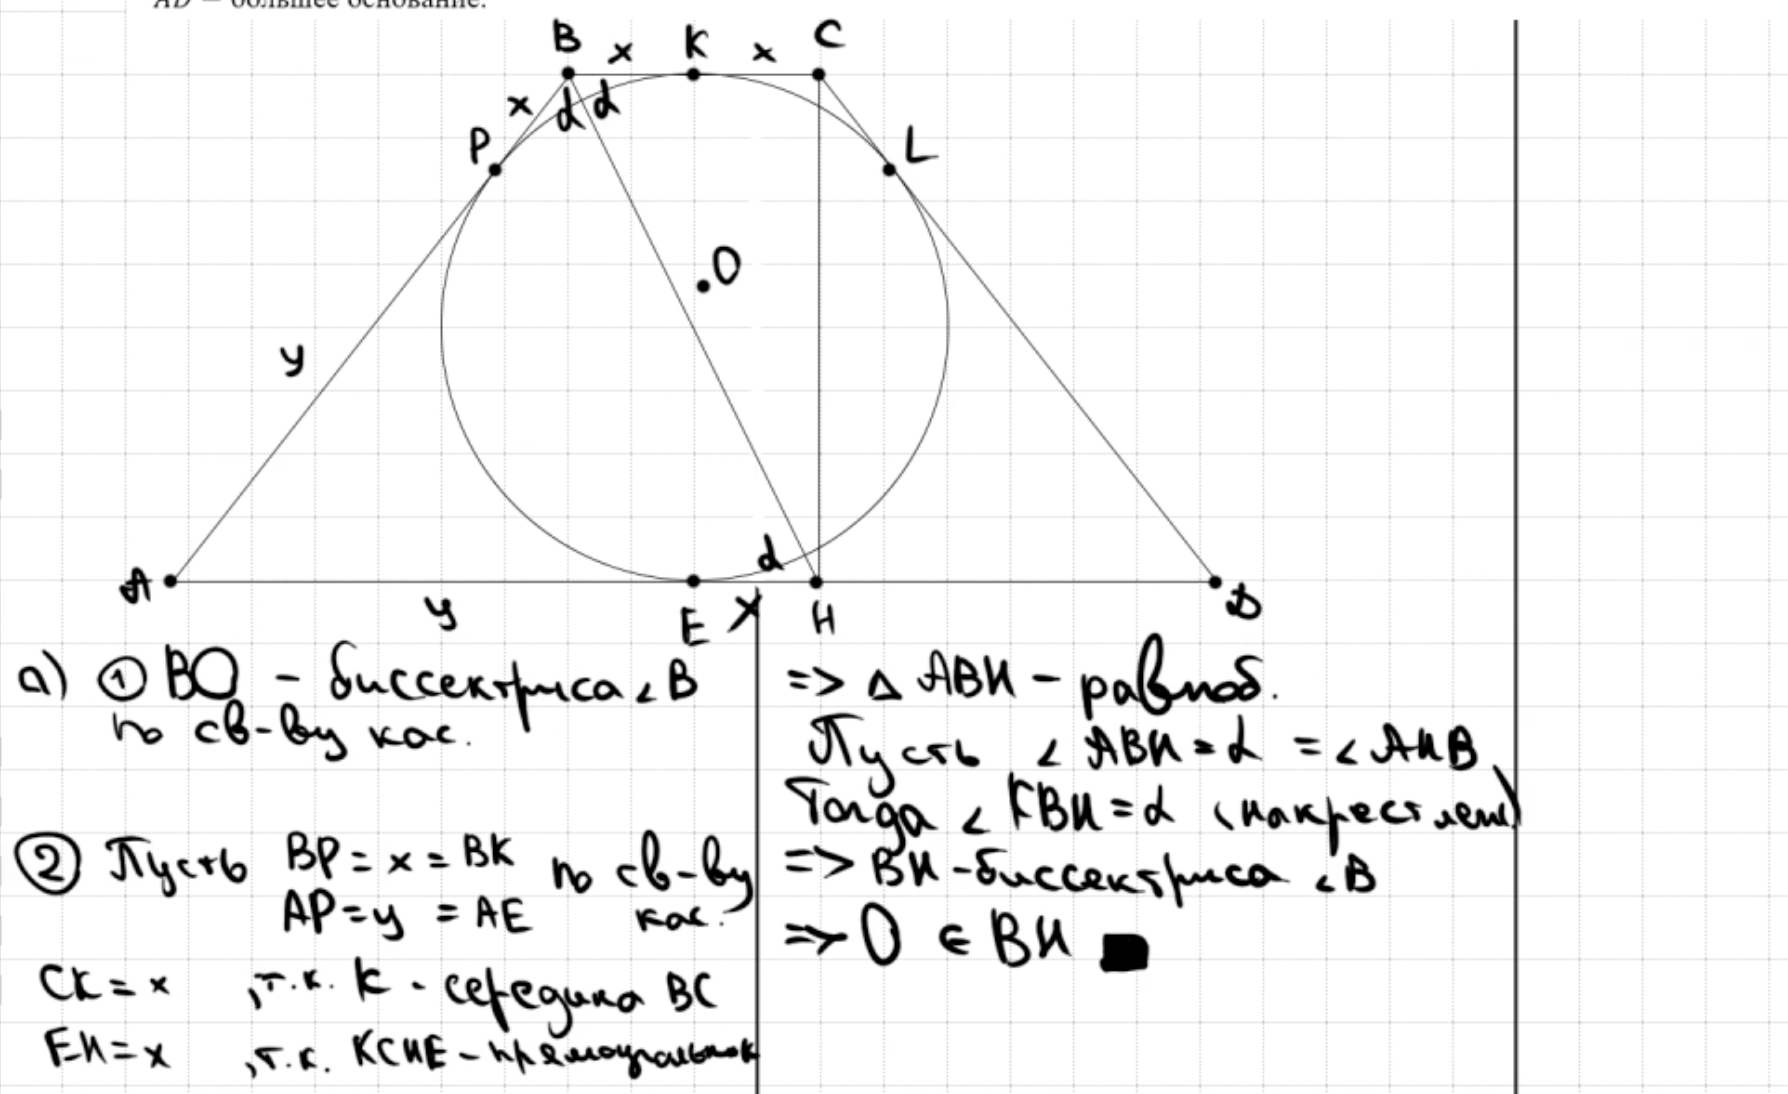 AD — большее основание.
B x K x C
x d d
P L
O
y
A d D
y E x H
а) ① BO - биссектриса ∠B
по св-ву кас.
② Пусть BP = x = BK по св-ву
AP = y = AE кас.
CK = x , т.к. K - середина BC
EH = x , т.к. KCHE - прямоугольник
=> △ ABH - равноб.
Пусть ∠ ABH = α = ∠ AHB
Тогда ∠ KBH = α (накрест леж)
=> BH - биссектриса ∠B
=> O ∈ BH ■